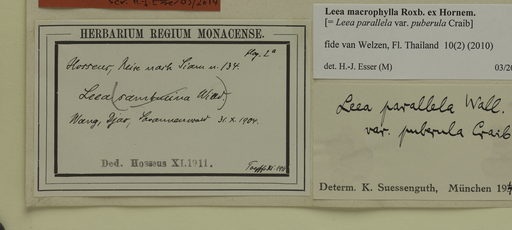 det. H.-J. Esser 05/2014
HERBARIUM REGIUM MONACENSE.
Hosseus, Reise nach Siam n. 134.
Leea (sambucina Willd)
Wang Djao, 31. X. 1904.
Ded. Hosseus XI.1911.
Leea macrophylla Roxb. ex Hornem.
[= Leea parallela var. puberula Craib]
fide van Welzen, Fl. Thailand 10(2) (2010)
det. H.-J. Esser (M)
03/20
Leea parallela Wall.
var. puberula Craib
Determ. K. Suessenguth, München 19